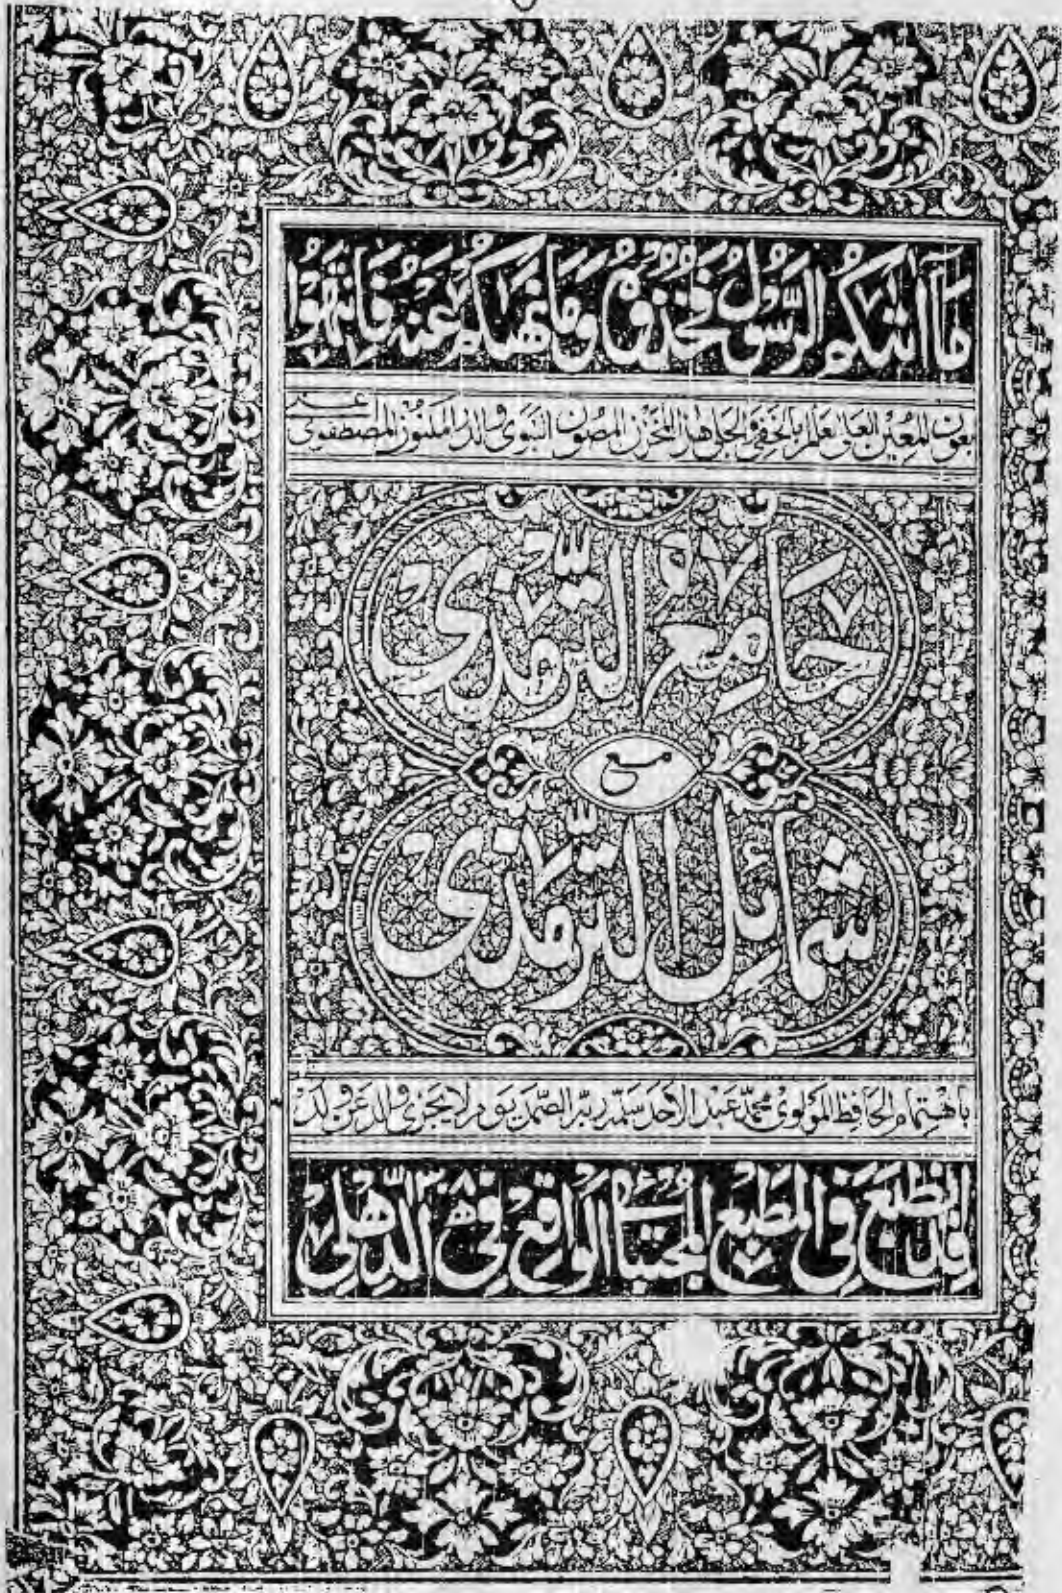 مَآ اٰتٰىكُمُ الرَّسُوْلُ فَخُذُوْهُ وَمَا نَهٰىكُمْ عَنْهُ فَانْتَهُوْا
بعون المعين العلى بالخفي والجلي هذا المخزن المصون النبوى والدر المنثور المصطفوى
جَامِعُ التِّرْمِذِيّ
مع
شَمَائِلِ التِّرْمِذِيّ
باهتمام الحافظ المولوى محمد عبد الاحد ربه الصمد يوم لا يجزى والد عن ولد
قد انطبع فى المطبع المجتبائى الواقع فى الدهلى